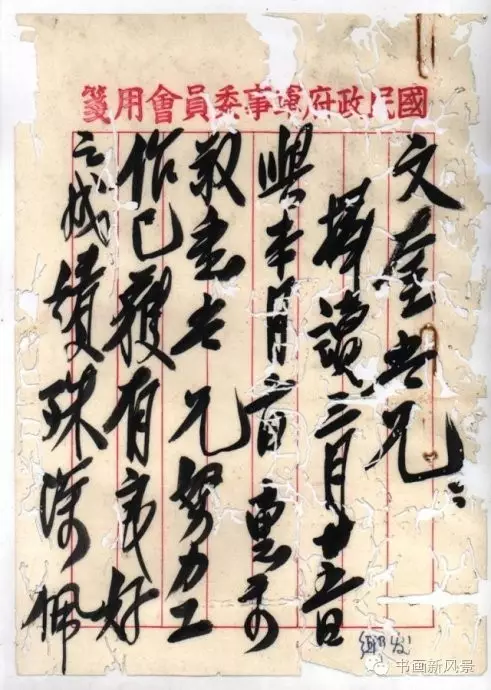 國民政府軍事委員會用箋
文吾兄：
捧讀三月十五日
與本月日惠示
敬悉吾兄努力工
作已獲有良好
之成績殊深佩
书画新风景